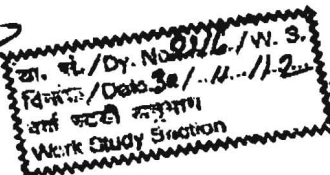 डा. सं./Dy. No. /W. S.
दिनांक/Date 30/.11./12...
कार्य अनुभाग
Work Study Section